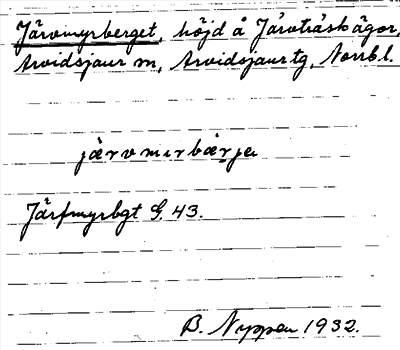 Järvmyrberget, höjd å Järvträsk ägor,
Arvidsjaur m, Arvidsjaur tg, Norrb. l.
järvmırbärjɐ
Järfmyrbgt G. 43.
B. Nyppen 1932.